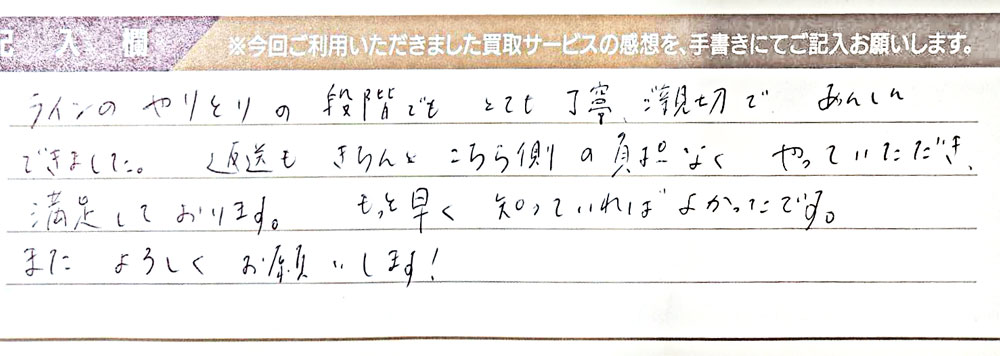 記入欄
※今回ご利用いただきました買取サービスの感想を、手書きにてご記入お願いします。
ラインのやりとりの段階でもとても丁寧、ご親切であんしん
できました。返送もきちんとこちら側の負担なくやっていただき、
満足しております。もっと早く知っていればよかったです。
またよろしくお願いします!